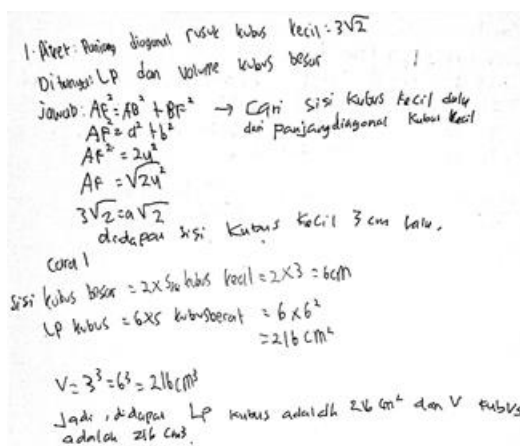 1. Diket: Panjang diagonal rusuk kubus kecil = 3√2
Ditanya: LP dan volume kubus besar
jawab: AF² = AB² + BF² → Cari sisi kubus kecil dulu
dari panjang diagonal kubus kecil
AF² = a² + b²
AF² = 2a²
AF = √2a²
3√2 = a√2
didapan sisi kubus kecil 3 cm lalu,
cara 1
sisi kubus besar = 2 x sisi kubus kecil = 2 x 3 = 6cm
LP kubus = 6x5 kubus = 6 x 6²
= 216 cm²
V = 3³ = 6³ = 216 cm³
Jadi, didapan LP kubus adalah 216 cm² dan V kubus
adalah 216 cm3.